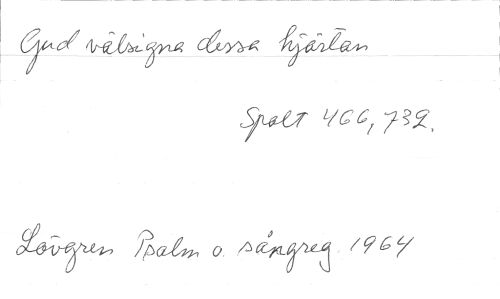 Gud välsigna dessa hjärtan
Spalt 466, 732.
Lövgren Psalm o. sångreg. 1964